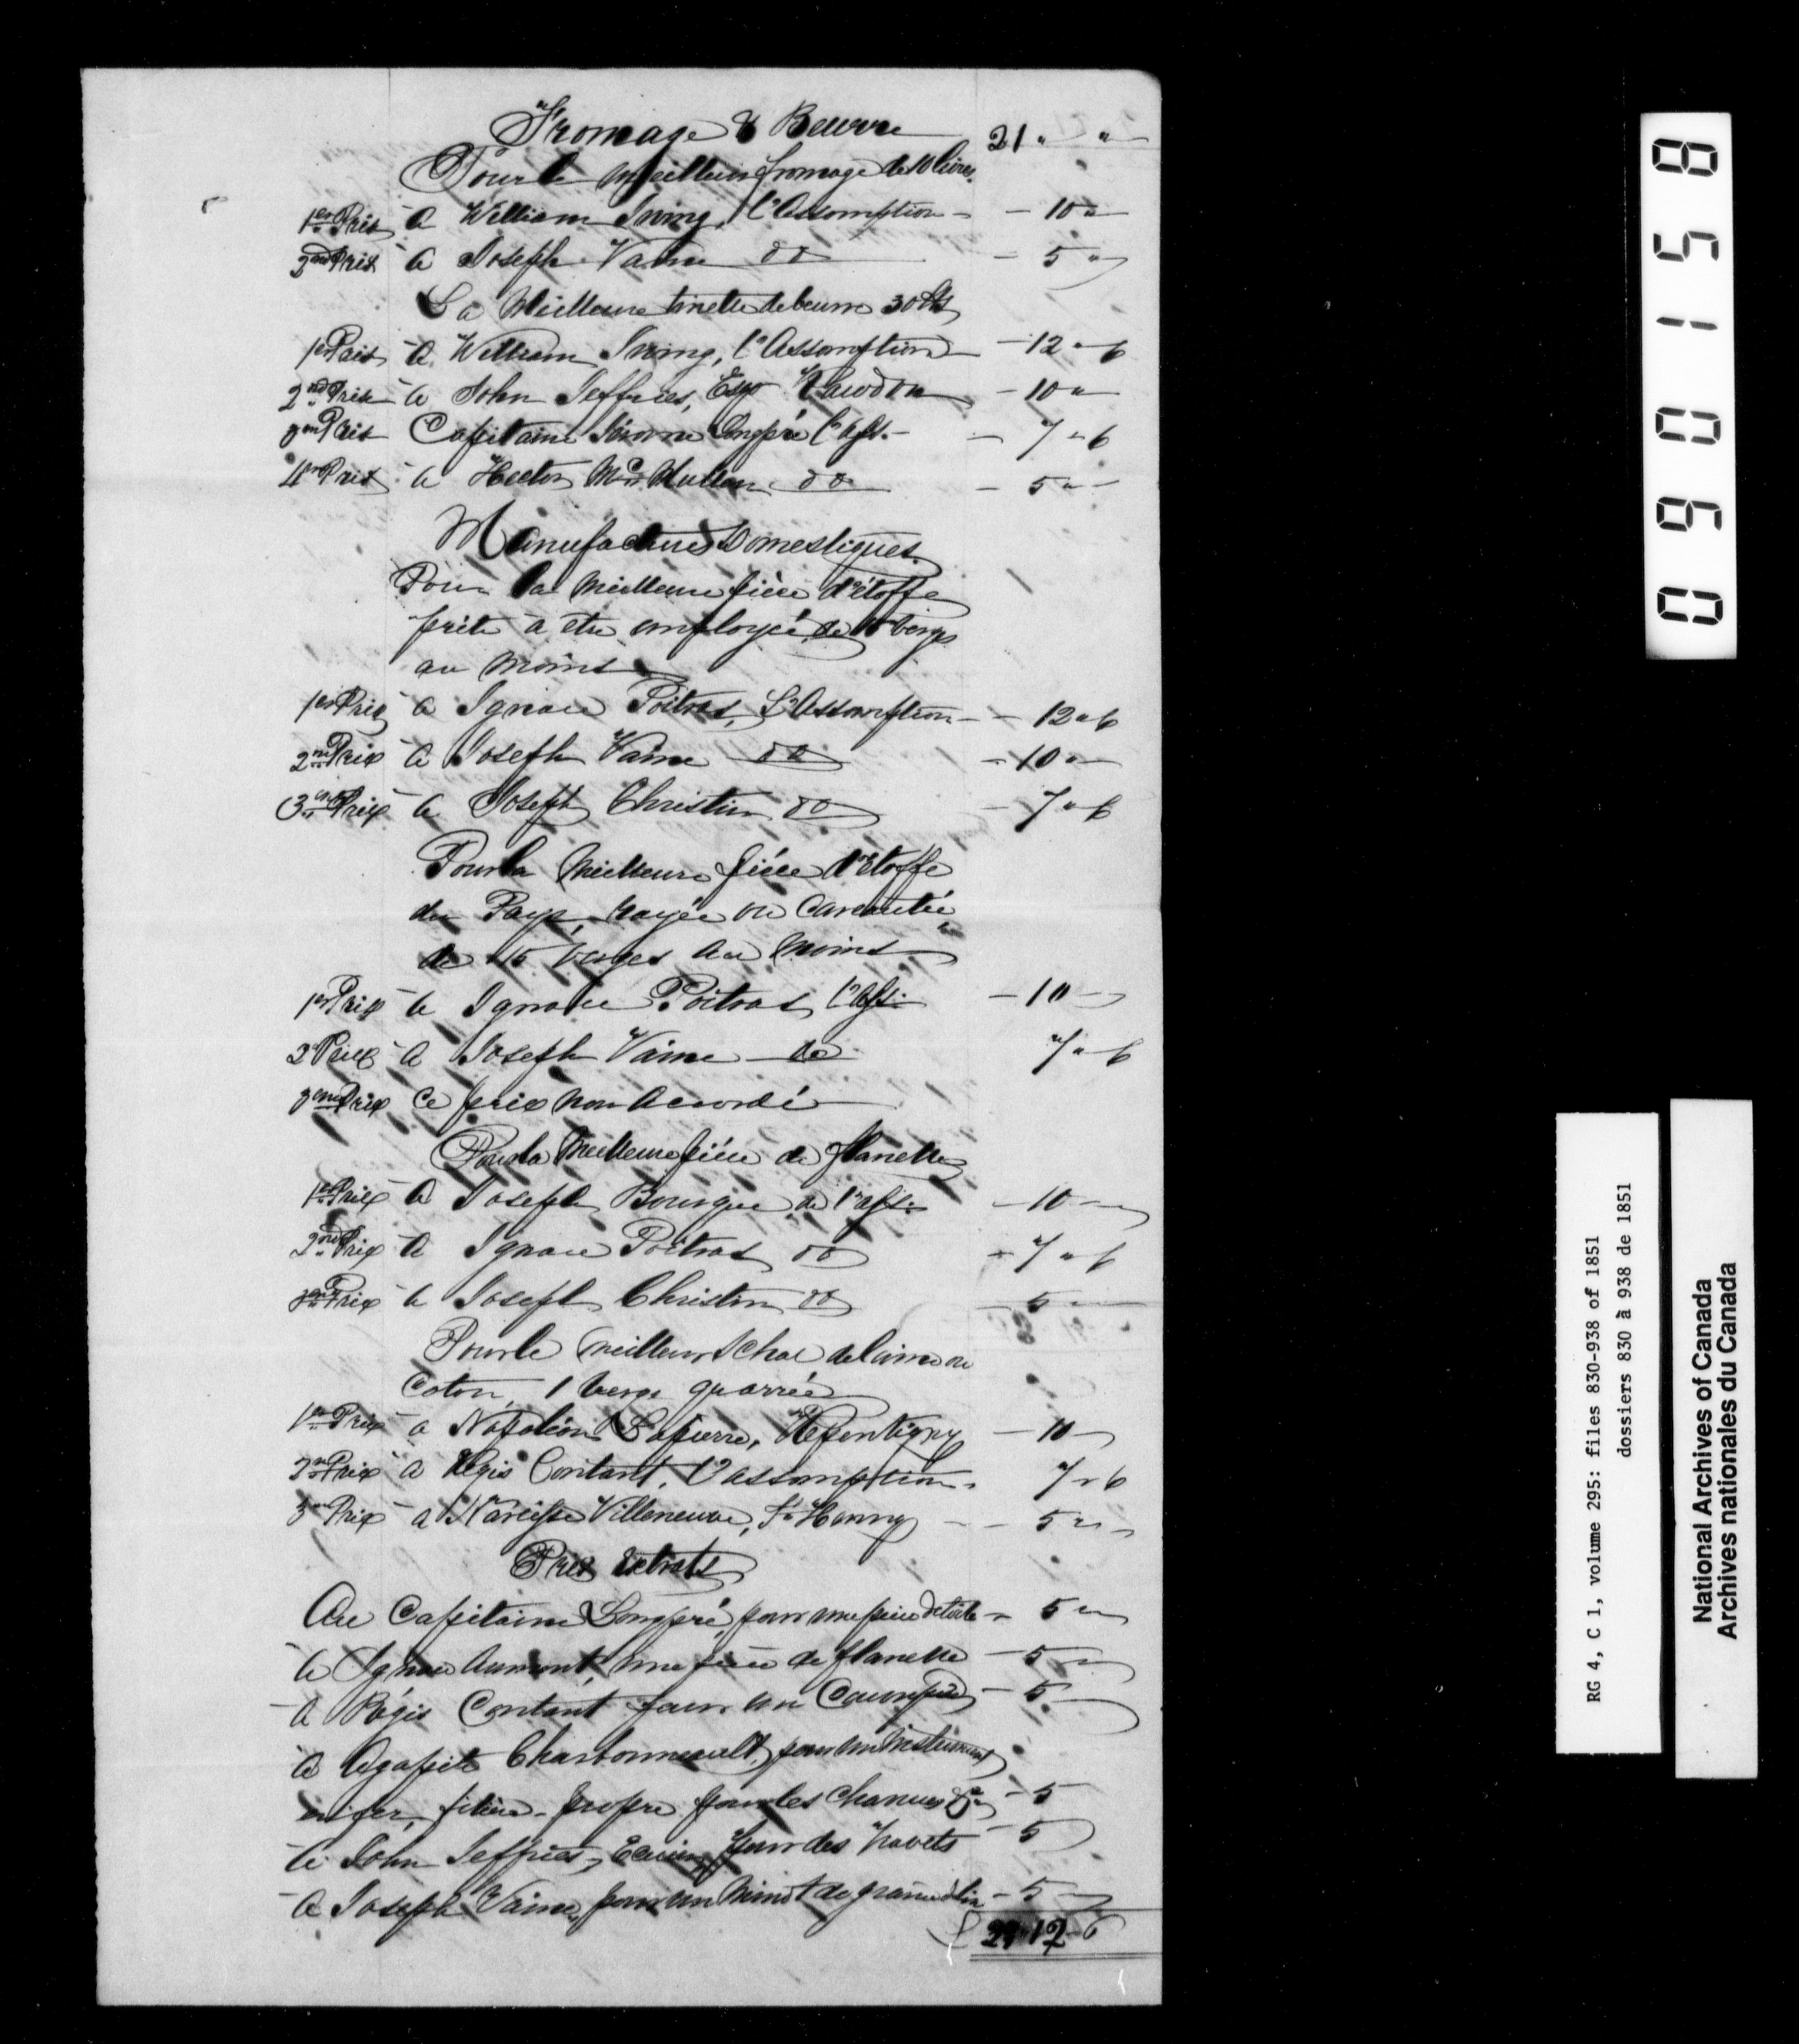 Fromage & Beurre 21 " "
Pour le meilleur fromage de 10 livres.
1er Prix à William Irving, l'Assomption - - 10 "
2nd Prix à Joseph Vaine do - 5 "
La Meilleure tinette de beurre 30 lbs
1er Prix à William Irving, l'Assomption - 12 " 6
2nd Prix à John Jeffries, Esqr Rawdon - 10 "
3me Prix Capitaine Jérome Longpré l'Ass. - - 7 " 6
4me Prix à Hector McMullen do - 5 " -
Manufactures Domestiques
Pour la meilleure pièce d'étoffe
prête à etre employée de 15 verges
au moins
1er Prix à Ignace Poitras, L'Assomption - - 12 " 6
2nd Prix à Joseph Vaine do - 10 "
3me Prix à Joseph Christin do - 7 " 6
Pour la Meilleure pièce d'Etoffe
du Pays, rayée ou Careautée
de 15 verges au moins
1er Prix à Ignace Poitras, l'Ass. - 10 -
2 Prix à Joseph Vaine - do 7 " 6
3me Prix Ce prix non Accordé
Pour la Meilleure pièce de flanelle
1er Prix à Joseph Bourque de l'Ass. - 10 -
2nd Prix à Ignace Poitras do - 7 " 6
3me Prix à Joseph Christin do - 5 -
Pour le meilleur Schal de laine ou
Coton, 1 verge quarrée
1er Prix à Napoléon Lapierre, Repentigny - 10 -
2nd Prix à Régis Contant, l'assomption. 7 " 6
3me Prix à Narcisse Villeneuve, St Henry - - 5 " -
Prix extraits
Au Capitaine Longpré, pour une pièce de toile - 5 "
à Ignace Aumont, une pièce de flanelle - 5 "
à Régis Contant pour un Couvrepied - 5 -
à Agapite Charbonneault, pour un instrument
en fer, propre pour les charrues &c - 5
à John Jeffries, Ecuier, pour des Navets - 5
à Joseph Vaine, pour un minot de graine de lin - 5
£ 29 12 6
090158
RG 4, C 1, volume 295: files 830-938 of 1851
dossiers 830 à 938 de 1851
National Archives of Canada
Archives nationales du Canada